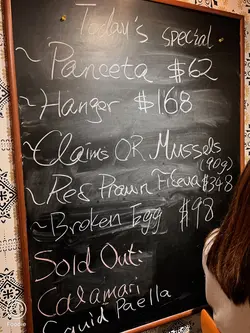 Today's special
~ Panceta $62
~ Hanger $168
~ Claims OR Mussels
(90g)
~ Red Prawn $348
~ Broken Egg $98
Sold Out:
Calamari
Squid Paella
Foodie